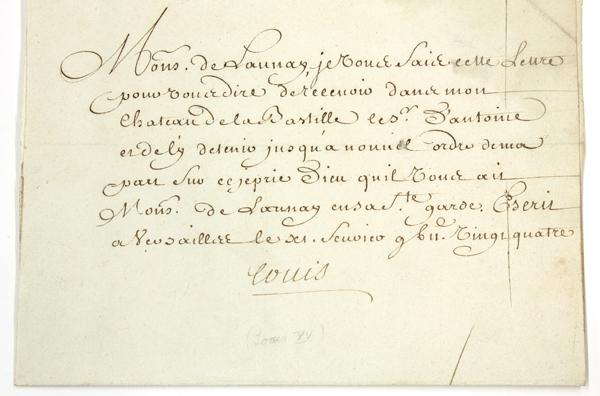 Mons. de Launay, je vous faire cette Lettre
pour vous dire de recevoir dans mon
Chateau de la Bastille le sr. D'antoine
et de l'y detenir jusqu'a nouvel ordre de ma
part sur ce je prie Dieu qu'il vous ait
Mons. de Launay en sa Ste garde. Escrit
a Versailles le xi. fevrier vingt quatre
Louis
(Louis XV)